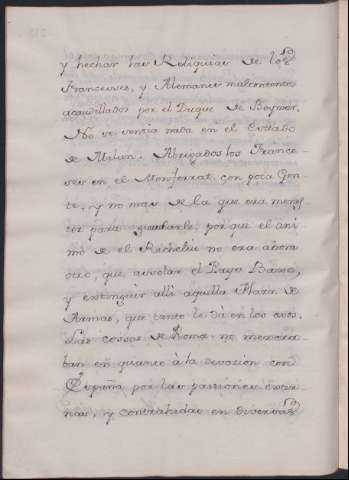 y hechar las Reliquias de los
Franceses, y Alemanes malcontentos
acaudillados por el Duque de Beymar.
No se temia nada en el Estado
de Milan. Abrigados los France-
ses en el Monferrat, con poca Gen-
te, y no mas de la que era menes-
ter para guardarle, por que el ani-
mo de el Richeliu no era ahora
otro, que asolar el Payo Baxo,
y extinguir alli aquella Plaza de
Armas, que tanto le da en los ojos.
Las cossas de Roma no mexora-
ban en quanto à la devozion con
España por las passiones exter-
nas, y contrahidas en diversas